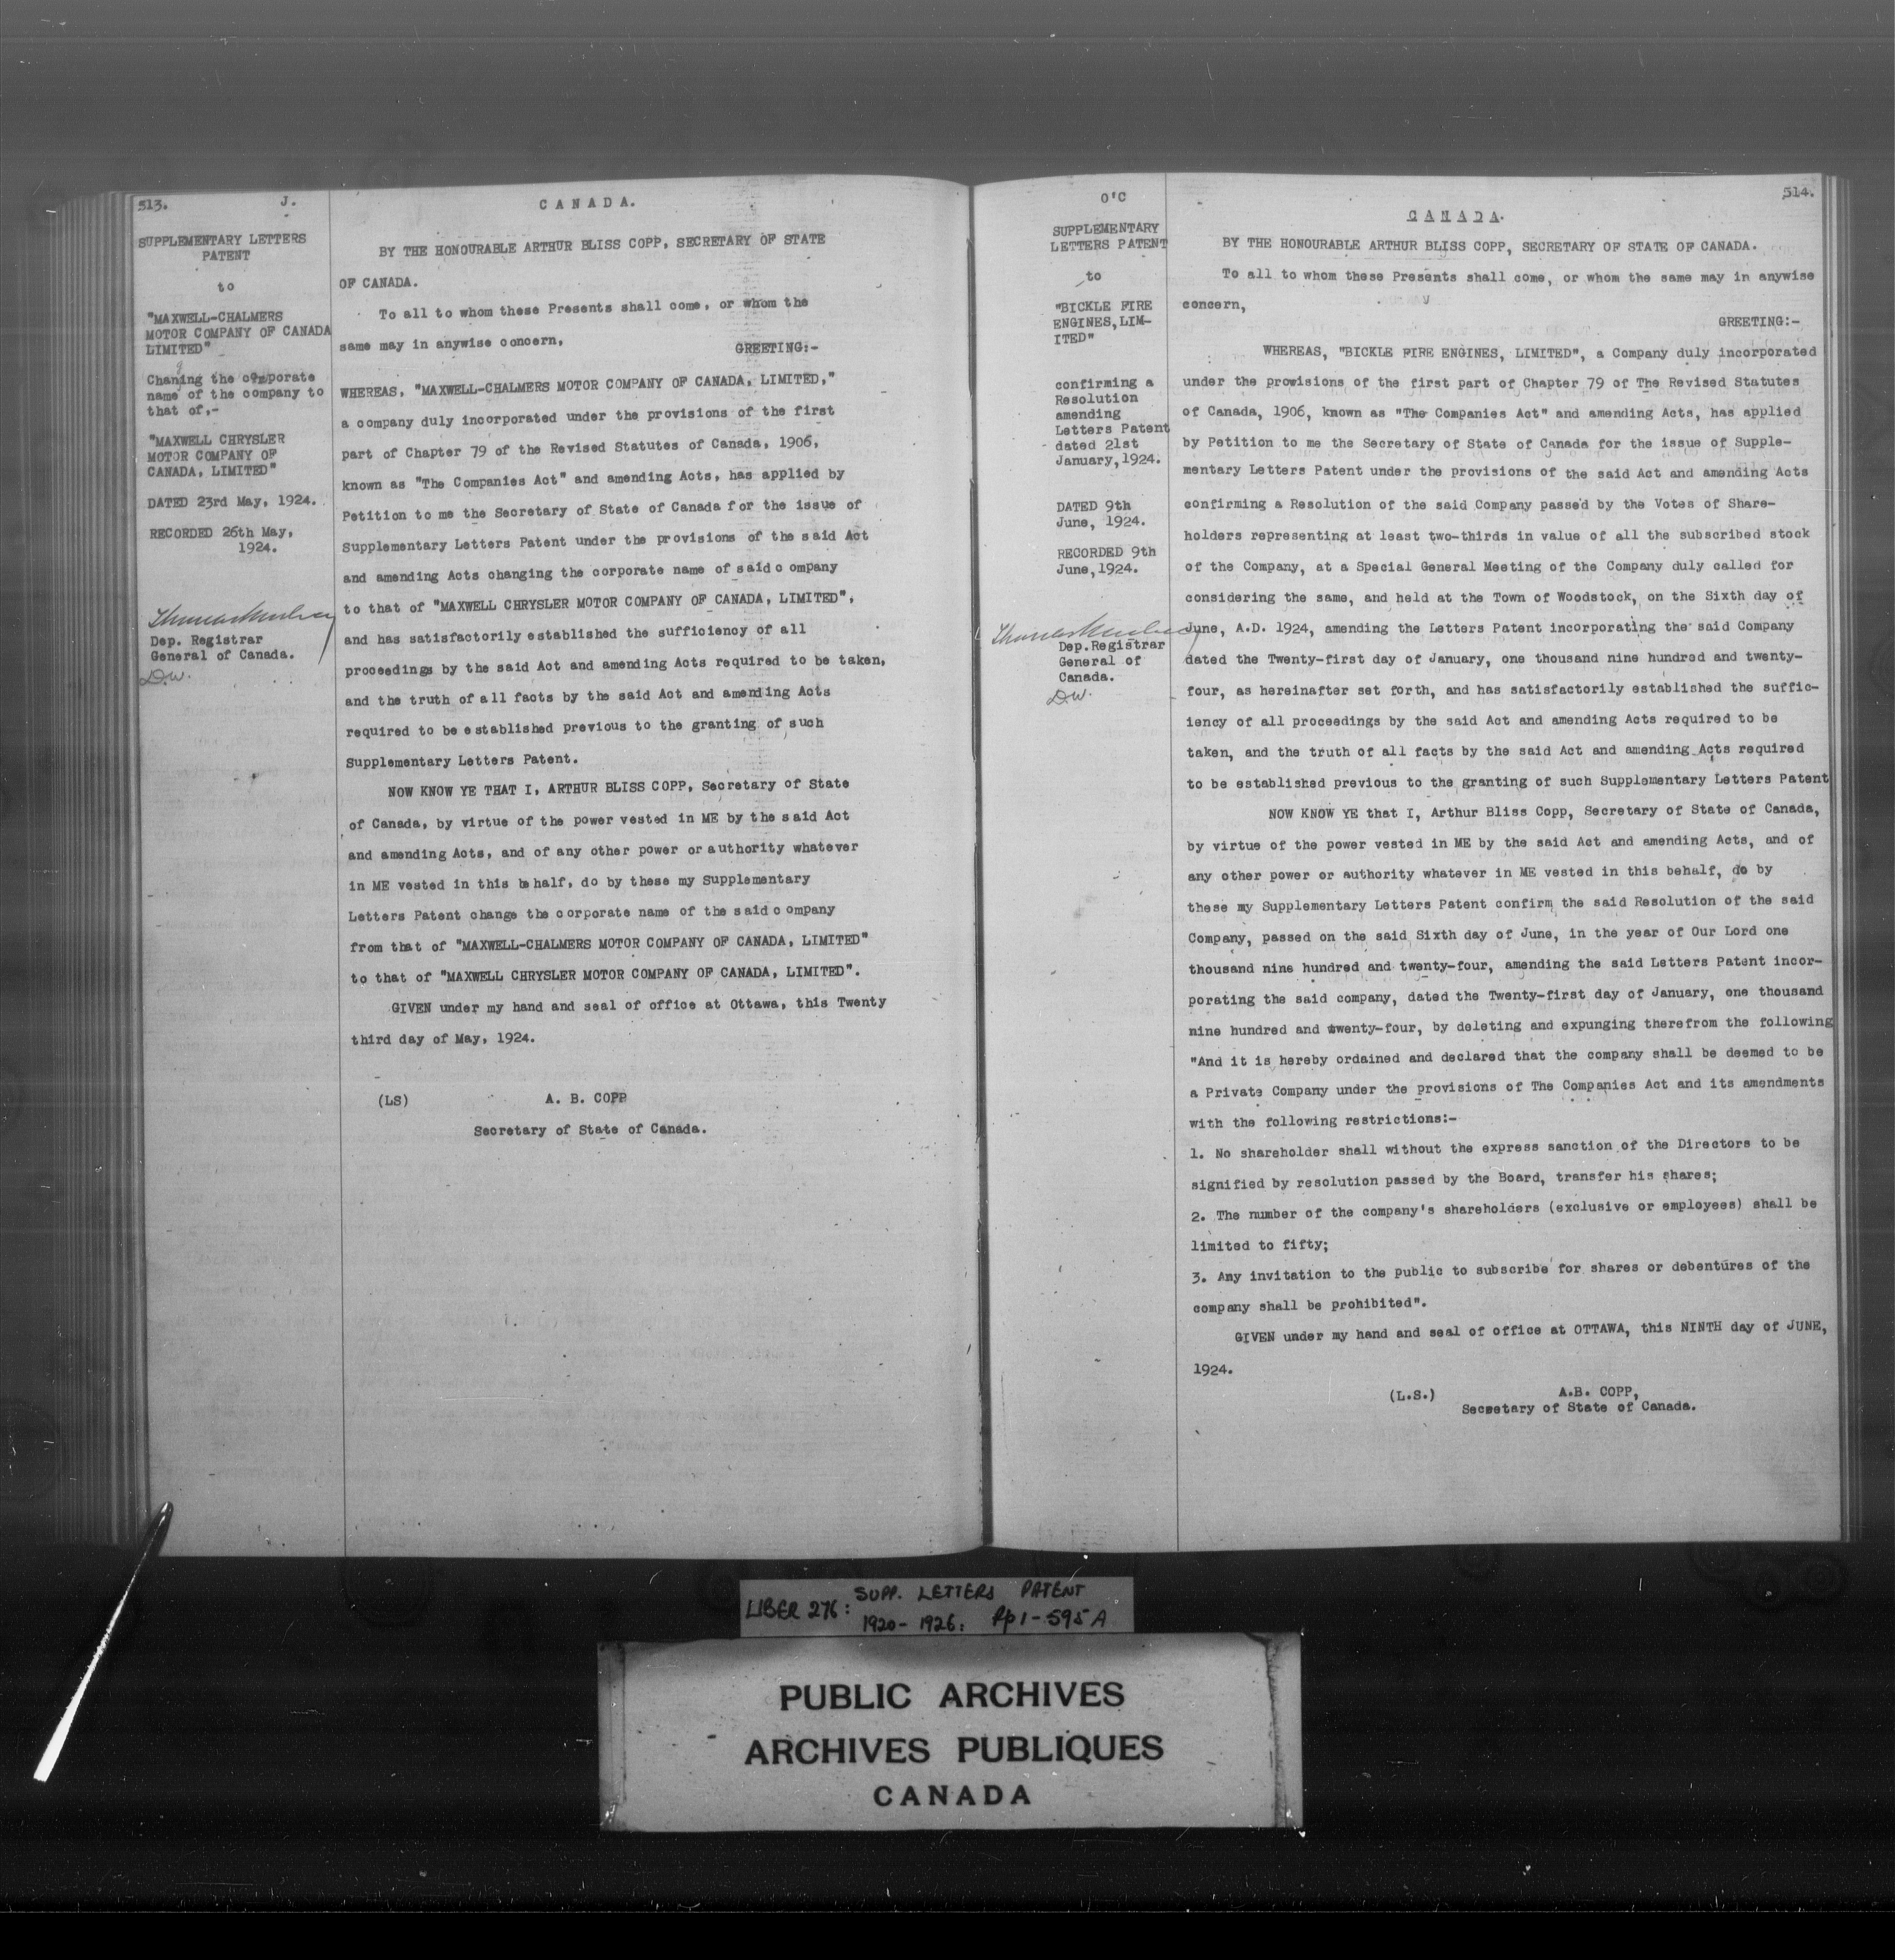 513. J.
SUPPLEMENTARY LETTERS
PATENT
to
"MAXWELL-CHALMERS
MOTOR COMPANY OF CANADA
LIMITED"
Chaning the corporate
name of the company to
that of,-
"MAXWELL CHRYSLER
MOTOR COMPANY OF
CANADA, LIMITED"
DATED 23rd May, 1924.
RECORDED 26th May,
1924.
Dep. Registrar
General of Canada.
D.W.
CANADA.
BY THE HONOURABLE ARTHUR BLISS COPP, SECRETARY OF STATE
OF CANADA.
To all to whom these Presents shall come, or whom the
same may in anywise concern,
GREETING:-
WHEREAS, "MAXWELL-CHALMERS MOTOR COMPANY OF CANADA, LIMITED,"
a company duly incorporated under the provisions of the first
part of Chapter 79 of the Revised Statutes of Canada, 1906,
known as "The Companies Act" and amending Acts, has applied by
Petition to me the Secretary of State of Canada for the issue of
Supplementary Letters Patent under the provisions of the said Act
and amending Acts changing the corporate name of said c ompany
to that of "MAXWELL CHRYSLER MOTOR COMPANY OF CANADA, LIMITED",
and has satisfactorily established the sufficiency of all
proceedings by the said Act and amending Acts required to be taken,
and the truth of all facts by the said Act and amending Acts
required to be established previous to the granting of such
Supplementary Letters Patent.
NOW KNOW YE THAT I, ARTHUR BLISS COPP, Secretary of State
of Canada, by virtue of the power vested in ME by the said Act
and amending Acts, and of any other power or authority whatever
in ME vested in this behalf, do by these my Supplementary
Letters Patent change the corporate name of the said c ompany
from that of "MAXWELL-CHALMERS MOTOR COMPANY OF CANADA, LIMITED"
to that of "MAXWELL CHRYSLER MOTOR COMPANY OF CANADA, LIMITED".
GIVEN under my hand and seal of office at Ottawa, this Twenty
third day of May, 1924.
(LS) A. B. COPP
Secretary of State of Canada.
O'C
SUPPLEMENTARY
LETTERS PATENT
to
"BICKLE FIRE
ENGINES, LIM-
ITED"
confirming a
Resolution
amending
Letters Patent
dated 21st
January, 1924.
DATED 9th
June, 1924.
RECORDED 9th
June, 1924.
Dep. Registrar
General of
Canada.
D.W.
514.
CANADA.
BY THE HONOURABLE ARTHUR BLISS COPP, SECRETARY OF STATE OF CANADA.
To all to whom these Presents shall come, or whom the same may in anywise
concern,
GREETING:-
WHEREAS, "BICKLE FIRE ENGINES, LIMITED", a Company duly incorporated
under the provisions of the first part of Chapter 79 of The Revised Statutes
of Canada, 1906, known as "The Companies Act" and amending Acts, has applied
by Petition to me the Secretary of State of Canada for the issue of Supple-
mentary Letters Patent under the provisions of the said Act and amending Acts
confirming a Resolution of the said Company passed by the Votes of Share-
holders representing at least two-thirds in value of all the subscribed stock
of the Company, at a Special General Meeting of the Company duly called for
considering the same, and held at the Town of Woodstock, on the Sixth day of
June, A.D. 1924, amending the Letters Patent incorporating the said Company
dated the Twenty-first day of January, one thousand nine hundred and twenty-
four, as hereinafter set forth, and has satisfactorily established the suffic-
iency of all proceedings by the said Act and amending Acts required to be
taken, and the truth of all facts by the said Act and amending Acts required
to be established previous to the granting of such Supplementary Letters Patent
NOW KNOW YE that I, Arthur Bliss Copp, Secretary of State of Canada,
by virtue of the power vested in ME by the said Act and amending Acts, and of
any other power or authority whatever in ME vested in this behalf, do by
these my Supplementary Letters Patent confirm the said Resolution of the said
Company, passed on the said Sixth day of June, in the year of Our Lord one
thousand nine hundred and twenty-four, amending the said Letters Patent incor-
porating the said company, dated the Twenty-first day of January, one thousand
nine hundred and twenty-four, by deleting and expunging therefrom the following
"And it is hereby ordained and declared that the company shall be deemed to be
a Private Company under the provisions of The Companies Act and its amendments
with the following restrictions:-
1. No shareholder shall without the express sanction of the Directors to be
signified by resolution passed by the Board, transfer his shares;
2. The number of the company's shareholders (exclusive or employees) shall be
limited to fifty;
3. Any invitation to the public to subscribe for shares or debentures of the
company shall be prohibited".
GIVEN under my hand and seal of office at OTTAWA, this NINTH day of JUNE,
1924.
(L.S.) A.B. COPP,
Secretary of State of Canada.
LIBER 276: SUPP. LETTERS PATENT
1920-1926: Pp 1-595A
PUBLIC ARCHIVES
ARCHIVES PUBLIQUES
CANADA